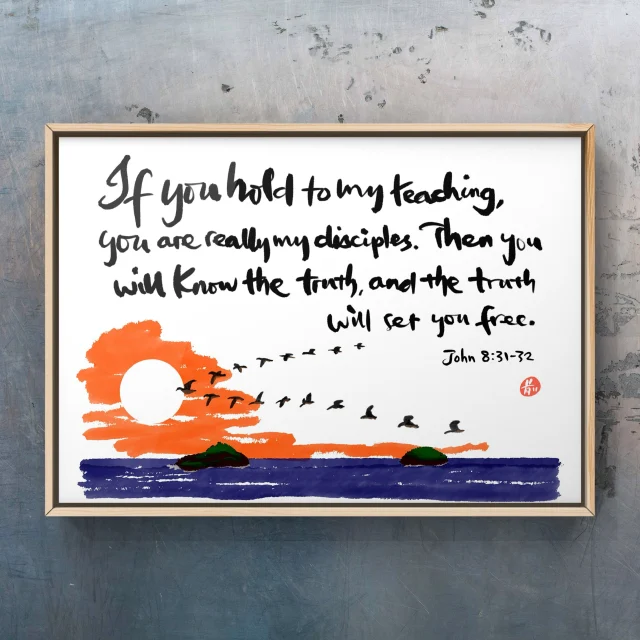 If you hold to my teaching,
you are really my disciples. Then you
will know the truth, and the truth
will set you free.
John 8:31-32